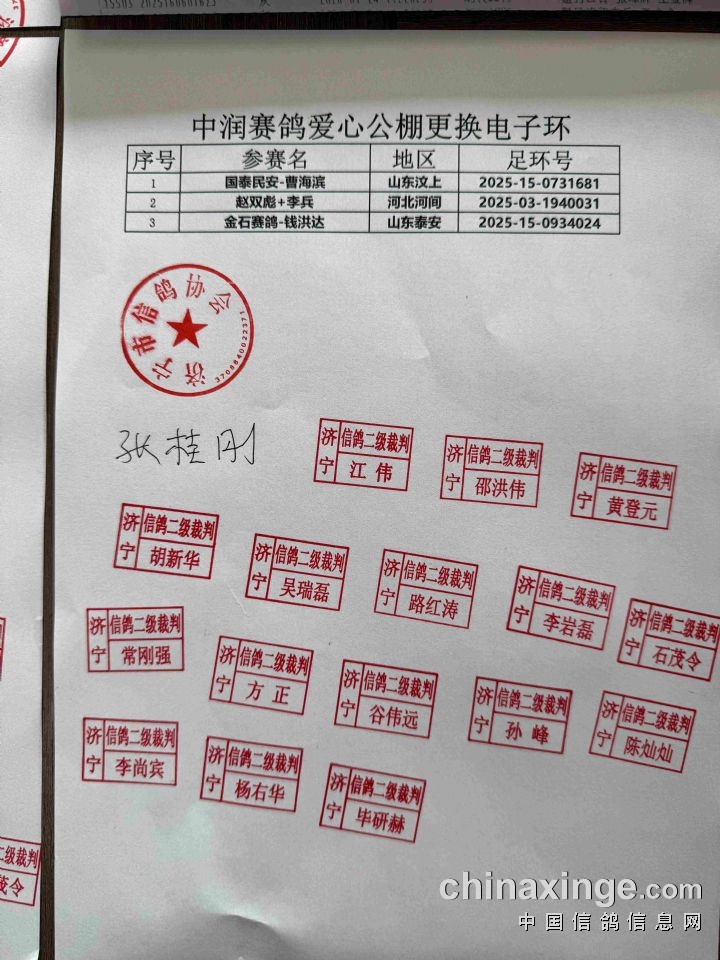 JS503 2025160601623
中润赛鸽爱心公棚更换电子环
序号 参赛名 地区 足环号
1 国泰民安-曹海滨 山东汶上 2025-15-0731681
2 赵双彪+李兵 河北河间 2025-03-1940031
3 金石赛鸽-钱洪达 山东泰安 2025-15-0934024
济宁市信鸽协会
3708840022371
张桂刚
济宁 信鸽二级裁判 江伟
济宁 信鸽二级裁判 邵洪伟
济宁 信鸽二级裁判 黄登元
济宁 信鸽二级裁判 胡新华
济宁 信鸽二级裁判 吴瑞磊
济宁 信鸽二级裁判 路红涛
济宁 信鸽二级裁判 李岩磊
济宁 信鸽二级裁判 石茂令
济宁 信鸽二级裁判 常刚强
济宁 信鸽二级裁判 方正
济宁 信鸽二级裁判 谷伟远
济宁 信鸽二级裁判 孙峰
济宁 信鸽二级裁判 陈灿灿
济宁 信鸽二级裁判 李尚宾
济宁 信鸽二级裁判 杨右华
济宁 信鸽二级裁判 毕研赫
二级裁判
茂令
chinaxinge.com
中国信鸽信息网